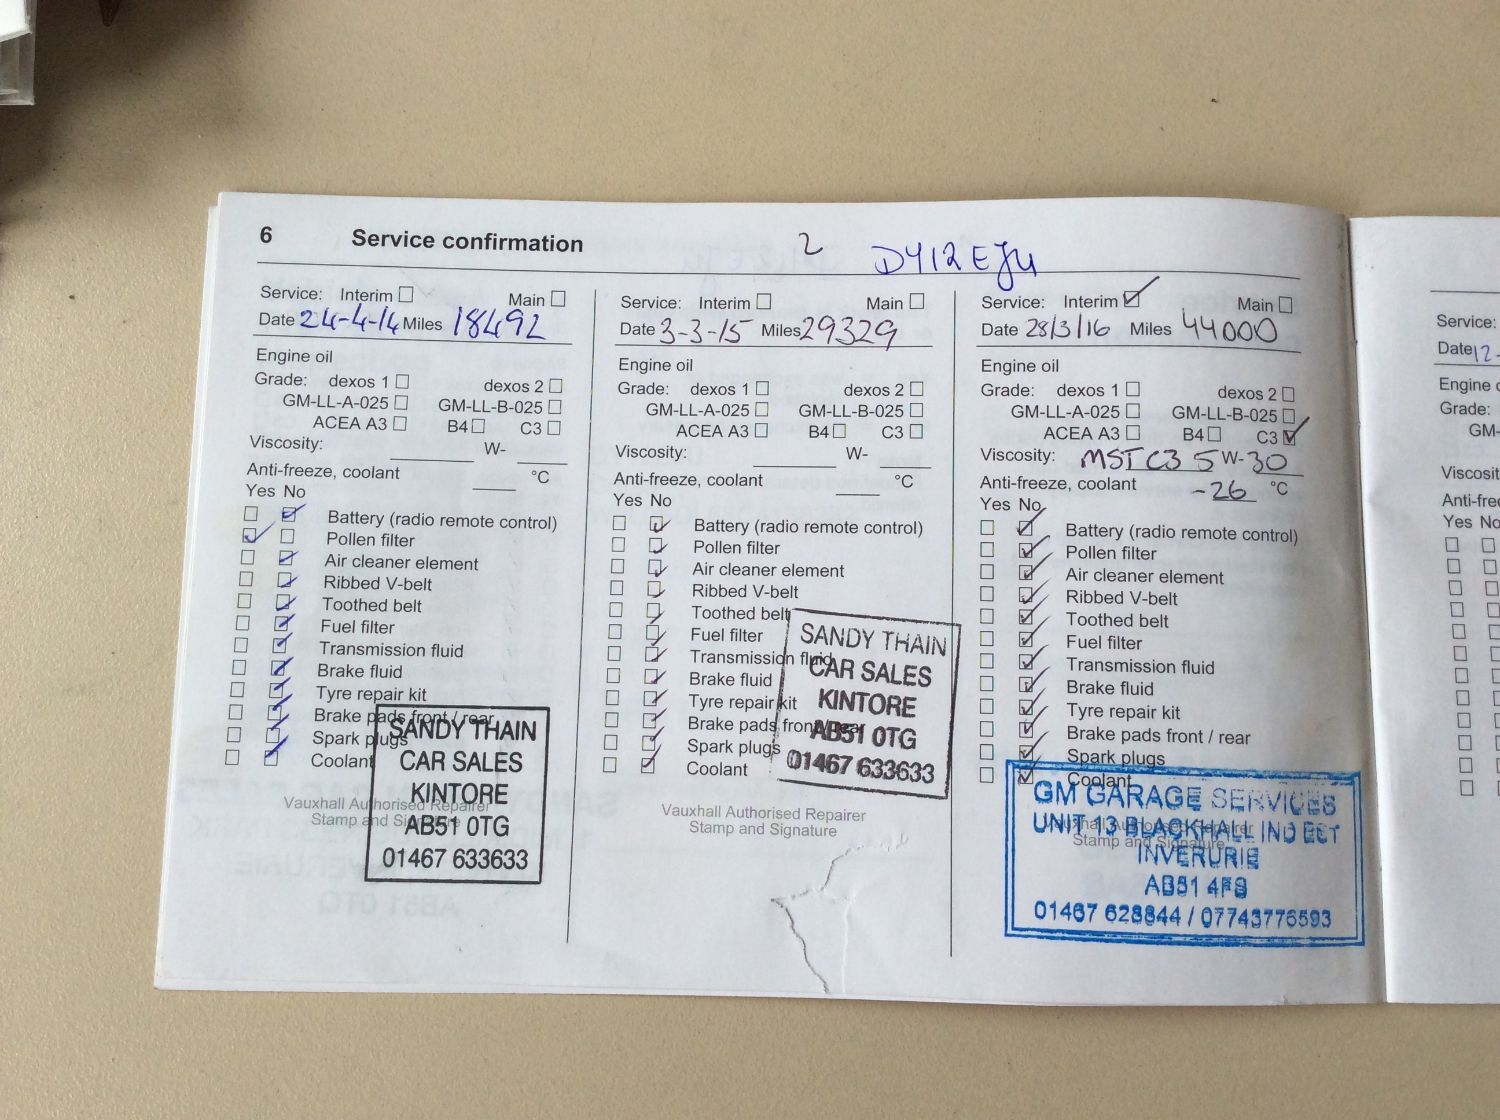 6 Service confirmation 2 DY12EJU
Service: Interim Main
Date 24-4-14 Miles 18492
Engine oil
Grade: dexos 1 dexos 2
GM-LL-A-025 GM-LL-B-025
ACEA A3 B4 C3
Viscosity: W-
Anti-freeze, coolant °C
Yes No
Battery (radio remote control)
Pollen filter
Air cleaner element
Ribbed V-belt
Toothed belt
Fuel filter
Transmission fluid
Brake fluid
Tyre repair kit
Brake pads front / rear
Spark plugs
Coolant
Vauxhall Authorised Repairer
Stamp and Signature
SANDY THAIN
CAR SALES
KINTORE
AB51 0TG
01467 633633
Service: Interim Main
Date 3-3-15 Miles 29329
Engine oil
Grade: dexos 1 dexos 2
GM-LL-A-025 GM-LL-B-025
ACEA A3 B4 C3
Viscosity: W-
Anti-freeze, coolant °C
Yes No
Battery (radio remote control)
Pollen filter
Air cleaner element
Ribbed V-belt
Toothed belt
Fuel filter
Transmission fluid
Brake fluid
Tyre repair kit
Brake pads front / rear
Spark plugs
Coolant
SANDY THAIN
CAR SALES
KINTORE
AB51 0TG
01467 633633
Vauxhall Authorised Repairer
Stamp and Signature
Service: Interim Main
Date 28/3/16 Miles 44000
Engine oil
Grade: dexos 1 dexos 2
GM-LL-A-025 GM-LL-B-025
ACEA A3 B4 C3
Viscosity: MST C3 5 W-30
Anti-freeze, coolant -26 °C
Yes No
Battery (radio remote control)
Pollen filter
Air cleaner element
Ribbed V-belt
Toothed belt
Fuel filter
Transmission fluid
Brake fluid
Tyre repair kit
Brake pads front / rear
Spark plugs
Coolant
Vauxhall Authorised Repairer
Stamp and Signature
GM GARAGE SERVICES
UNIT 13 BLACKHALL IND EST
INVERURIE
AB51 4FS
01467 628844 / 07743776593
Service:
Date 12-
Engine
Grade:
GM-
Viscosit
Anti-free
Yes No